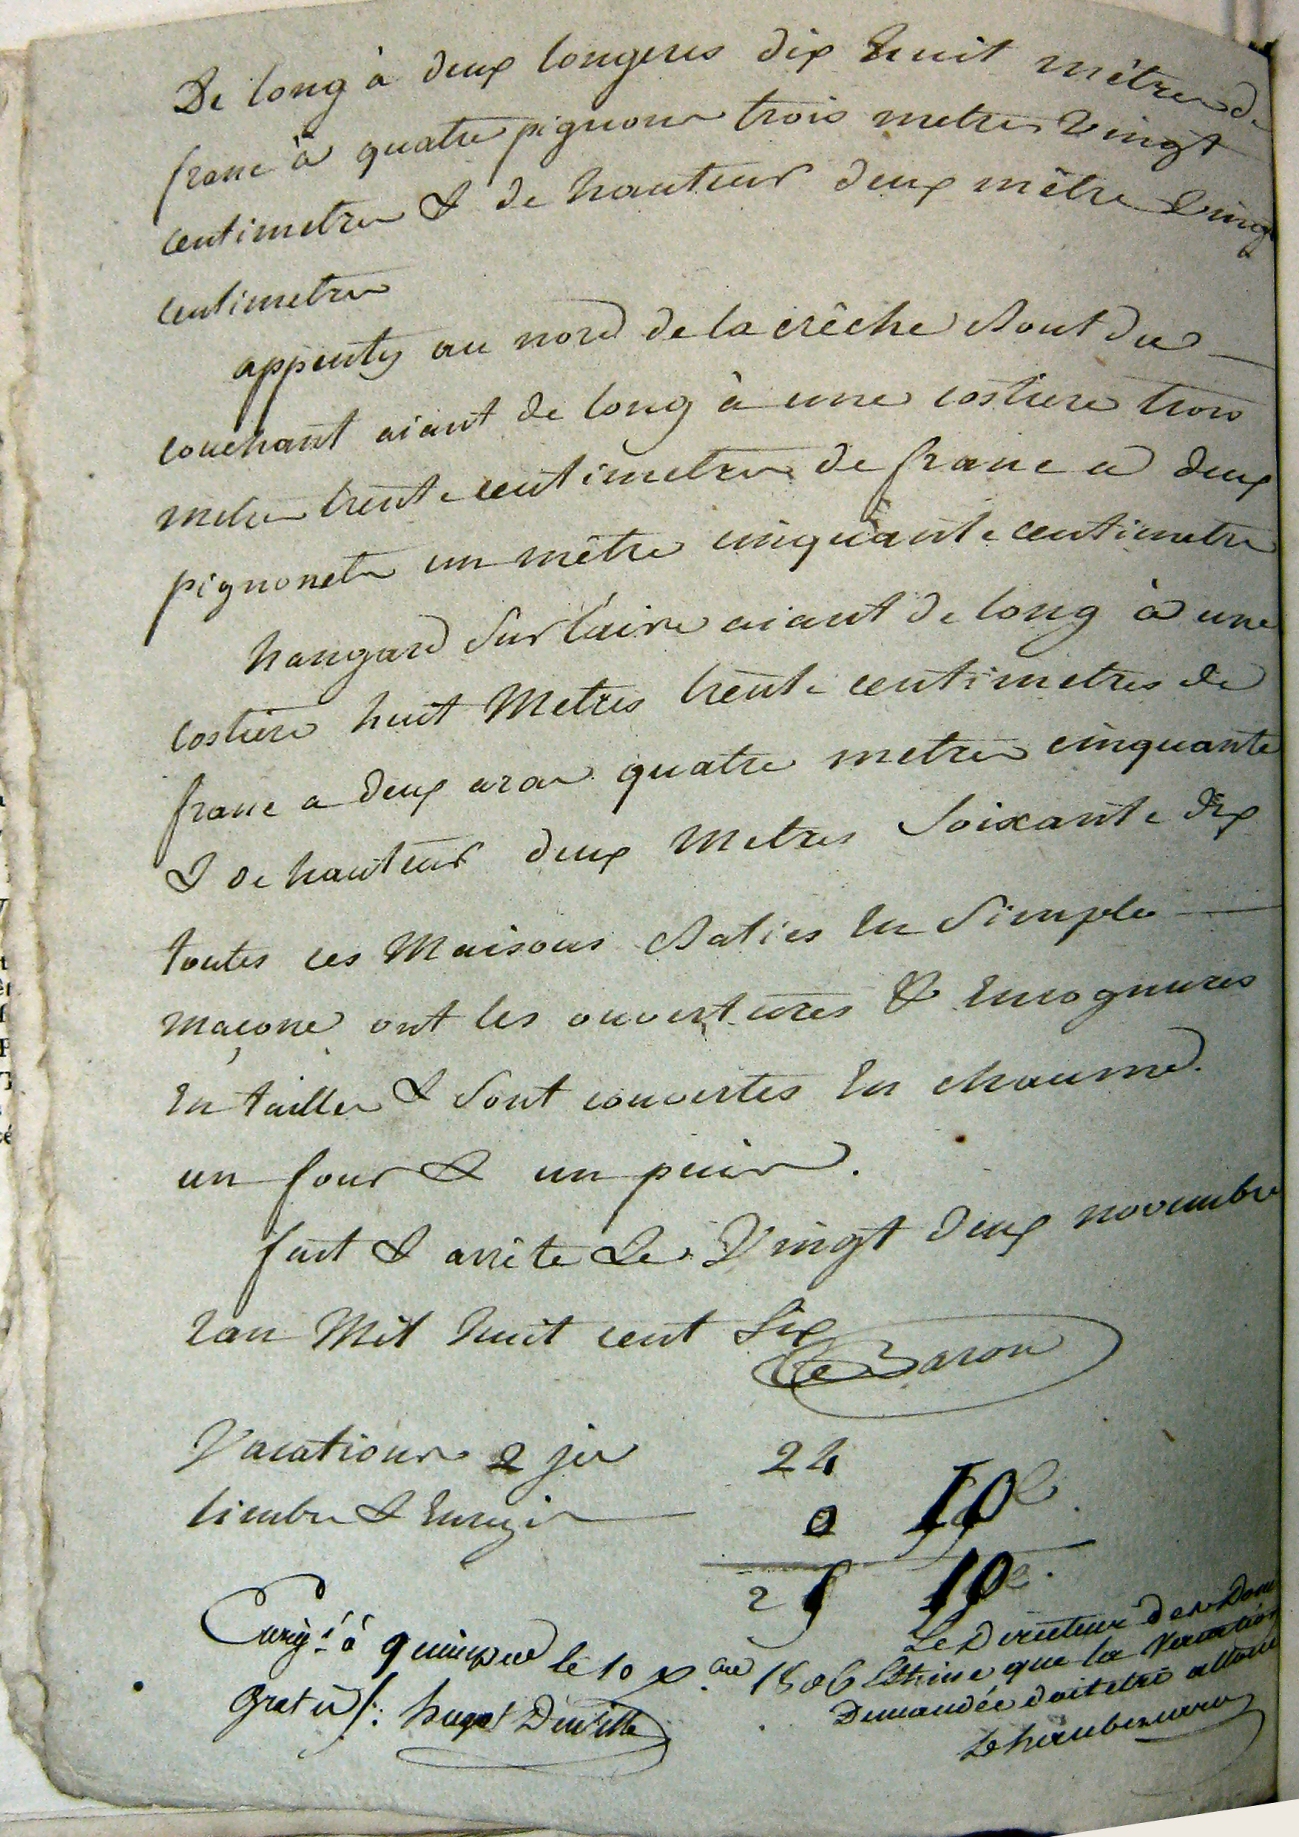 De long à deux longeres dix huit mètres de
franc à quatre pignons trois metres vingt
centimetres & de hauteur deux mètre vingt
centimetres
appenty au nord de la crêche & bout du
couchant aiant de long à une costiere trois
metres trente centimetres de franc a deux
pignonets un mètre cinquante centimetre
hangard sur l'aire aiant de long à une
costiere huit Metres trente centimetres de
franc a deux aras quatre metres cinquante
& de hauteur deux Metres soixante dix
toutes ces Maisons baties En simple
maçone ont les ouvertures & Encognures
En tailles & sont couvertes En chaume.
un four & un puis.
fait & arrêté Le Vingt deux novembre
l'an Mil huit cent six
Le Baron
Vacations 2 jrs 24
timbre & Enregis 0 10 c
2 10 c.
Enrig.é à quimper le 10 x.bre 1806
gratis /: hugot Derville
Le Directeur des Dom
Estime que la Vacation
Demandée doit etre allouée